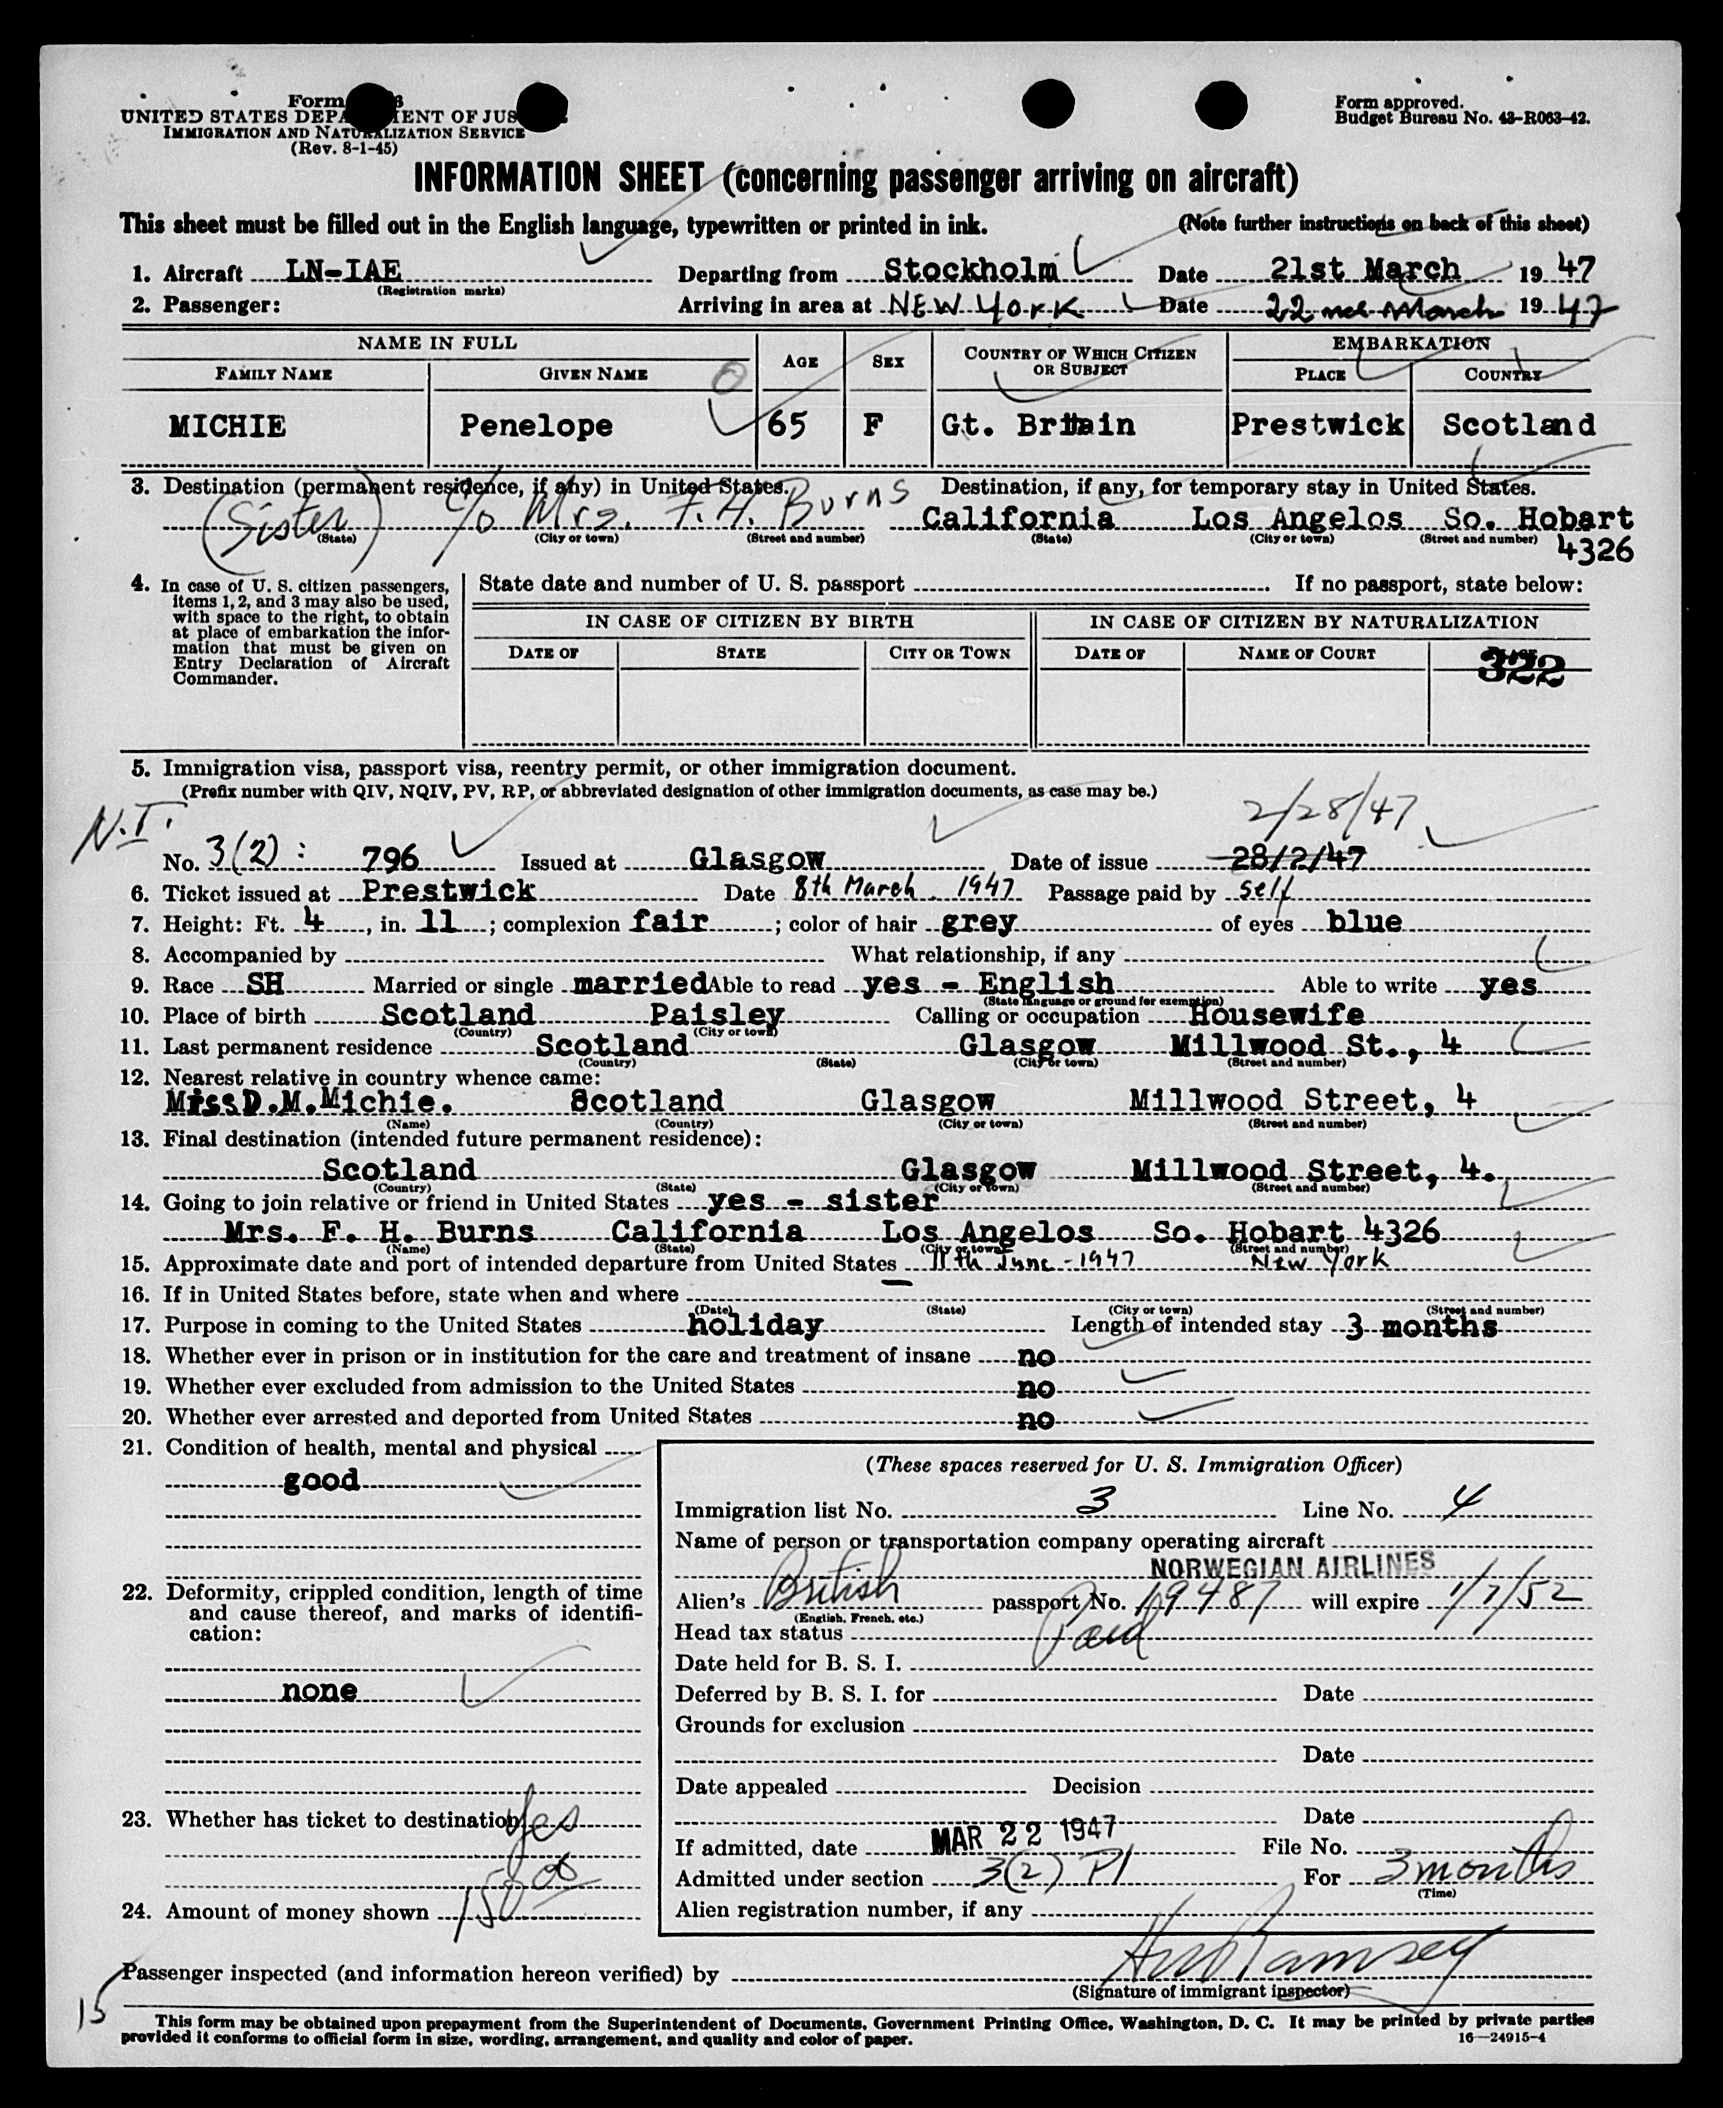 Form
UNITED STATES DEPA MENT OF JUS
IMMIGRATION AND NATURALIZATION SERVICE
(Rev. 8-1-45)
Form approved.
Budget Bureau No. 43-R063-42.
INFORMATION SHEET (concerning passenger arriving on aircraft)
This sheet must be filled out in the English language, typewritten or printed in ink. (Note further instructions on back of this sheet)
1. Aircraft LN-IAE Departing from Stockholm Date 21st March 1947
(Registration marks)
2. Passenger: Arriving in area at NEW YORK Date 22nd March 1947
NAME IN FULL AGE SEX COUNTRY OF WHICH CITIZEN OR SUBJECT EMBARKATION
FAMILY NAME GIVEN NAME PLACE COUNTRY
MICHIE Penelope 65 F Gt. Britain Prestwick Scotland
3. Destination (permanent residence, if any) in United States. Destination, if any, for temporary stay in United States.
(Sister) c/o Mrs. F. H. Burns California Los Angelos So. Hobart
(State) (City or town) (Street and number) (State) (City or town) (Street and number) 4326
4. In case of U. S. citizen passengers, items 1, 2, and 3 may also be used, with space to the right, to obtain at place of embarkation the information that must be given on Entry Declaration of Aircraft Commander.
State date and number of U. S. passport If no passport, state below:
IN CASE OF CITIZEN BY BIRTH IN CASE OF CITIZEN BY NATURALIZATION
DATE OF STATE CITY OR TOWN DATE OF NAME OF COURT 322
5. Immigration visa, passport visa, reentry permit, or other immigration document.
(Prefix number with QIV, NQIV, PV, RP, or abbreviated designation of other immigration documents, as case may be.)
N.I. 2/28/47
No. 3(2): 796 Issued at Glasgow Date of issue 28/2/47
6. Ticket issued at Prestwick Date 8th March, 1947 Passage paid by self
7. Height: Ft. 4, in. 11; complexion fair; color of hair grey of eyes blue
8. Accompanied by What relationship, if any
9. Race SH Married or single married Able to read yes - English Able to write yes
(State language or ground for exemption)
10. Place of birth Scotland Paisley Calling or occupation Housewife
(Country) (City or town)
11. Last permanent residence Scotland Glasgow Millwood St., 4
(Country) (State) (City or town) (Street and number)
12. Nearest relative in country whence came:
Miss D.M. Michie. Scotland Glasgow Millwood Street, 4
(Name) (Country) (City or town) (Street and number)
13. Final destination (intended future permanent residence):
Scotland Glasgow Millwood Street, 4.
(Country) (State) (City or town) (Street and number)
14. Going to join relative or friend in United States yes - sister
Mrs. F. H. Burns California Los Angelos So. Hobart 4326
(Name) (State) (City or town) (Street and number)
15. Approximate date and port of intended departure from United States 11th June - 1947 New York
16. If in United States before, state when and where —
(Date) (State) (City or town) (Street and number)
17. Purpose in coming to the United States holiday Length of intended stay 3 months
18. Whether ever in prison or in institution for the care and treatment of insane no
19. Whether ever excluded from admission to the United States no
20. Whether ever arrested and deported from United States no
21. Condition of health, mental and physical
good
22. Deformity, crippled condition, length of time and cause thereof, and marks of identification:
none
23. Whether has ticket to destination Yes
24. Amount of money shown 150 00
(These spaces reserved for U. S. Immigration Officer)
Immigration list No. 3 Line No. 4
Name of person or transportation company operating aircraft
NORWEGIAN AIRLINES
Alien's British passport No. 19487 will expire 1/7/52
(English, French, etc.)
Head tax status Paid
Date held for B. S. I.
Deferred by B. S. I. for Date
Grounds for exclusion
Date
Date appealed Decision
Date
If admitted, date MAR 22 1947 File No.
Admitted under section 3(2) P1 For 3 months
(Time)
Alien registration number, if any
Passenger inspected (and information hereon verified) by Ramsey
(Signature of immigrant inspector)
15
This form may be obtained upon prepayment from the Superintendent of Documents, Government Printing Office, Washington, D. C. It may be printed by private parties
provided it conforms to official form in size, wording, arrangement, and quality and color of paper. 16—24915-4